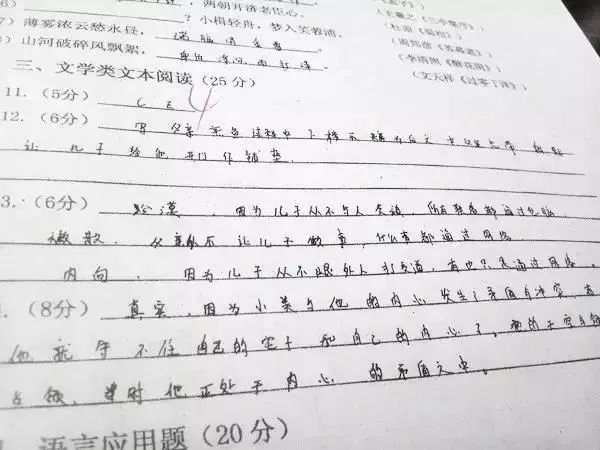 两朝开济老臣心。
？小楫轻舟，梦入芙蓉浦。
7）薄雾浓云愁永昼，瑞脑消金兽。
8）山河破碎风飘絮，身世浮沉雨打萍。
（王羲之《兰亭集序》）
（杜甫《蜀相》）
（周邦彦《苏幕遮》）
（李清照《醉花阴》）
（文天祥《过零丁洋》）
三、文学类文本阅读（25分）
11.（5分） C E 4
12.（6分） 写父亲
让儿子给他开门作铺垫.
3.（6分） 冷漠，因为儿子从不与人交谈，所有
懒散. 父亲从不让儿子做事，什么都通过网络
内向，因为儿子从不跟外人打交道，有也只是通过网络。
（8分）真实，因为小美与他的内心发生了矛盾与冲突，
他就守不住自己的 和自己的内心了。
占领，当时他正处于内心的矛盾之中。
语言应用题（20分）